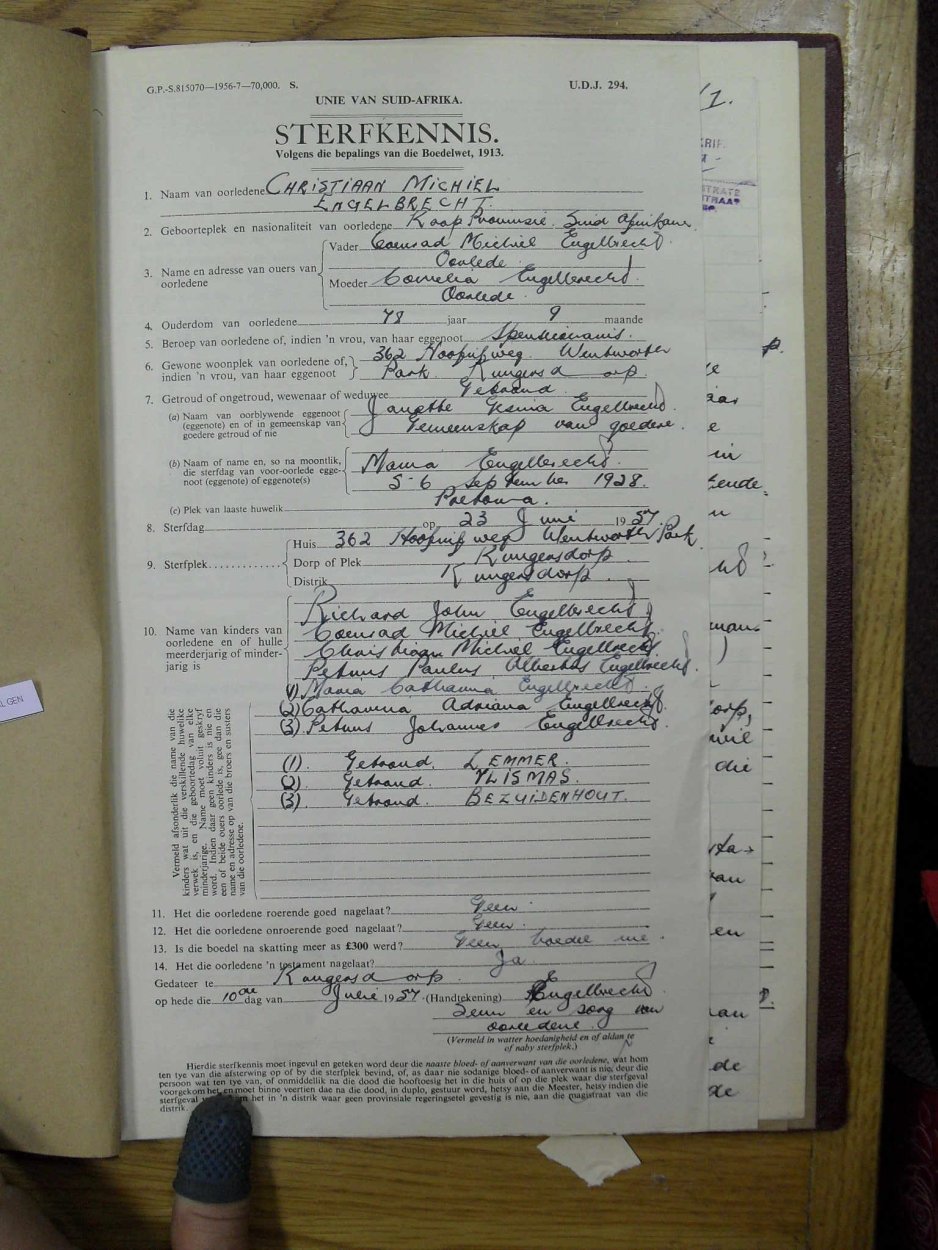 G.P.-S.815070—1956-7—70,000. S.
U.D.J. 294.
UNIE VAN SUID-AFRIKA.
STERFKENNIS.
Volgens die bepalings van die Boedelwet, 1913.
1. Naam van oorledene CHRISTIAAN MICHIEL
ENGELBRECHT.
2. Geboorteplek en nasionaliteit van oorledene Kaap Provinsie. Suid Afrikaner
3. Name en adresse van ouers van oorledene
Vader Coenrad Michiel Engelbrecht
Oorlede.
Moeder Cornelia Engelbrecht
Oorlede.
4. Ouderdom van oorledene 78 jaar 9 maande
5. Beroep van oorledene of, indien 'n vrou, van haar eggenoot
6. Gewone woonplek van oorledene of, indien 'n vrou, van haar eggenoot
362 Hoofrifweg. Wentworth
Park. Krugersdorp
7. Getroud of ongetroud, wewenaar of weduwee Getroud.
(a) Naam van oorblywende eggenoot (eggenote) en of in gemeenskap van goedere getroud of nie
Engelbrecht.
Gemeenskap van goedere.
(b) Naam of name en, so na moontlik, die sterfdag van voor-oorlede eggenoot (eggenote) of eggenote(s)
Maria Engelbrecht.
5-6 September 1928.
(c) Plek van laaste huwelik Pretoria.
8. Sterfdag op 23 Junie 1957.
9. Sterfplek
Huis 362 Hoofrifweg Wentworth Park
Dorp of Plek Krugersdorp
Distrik Krugersdorp.
10. Name van kinders van oorledene en of hulle meerderjarig of minderjarig is
Richard John Engelbrecht
Coenrad Michiel Engelbrecht.
Christiaan Michiel Engelbrecht.
Petrus Paulus Albertus Engelbrecht.
(1) Maria Catharina Engelbrecht.
(2) Catharina Adriana Engelbrecht.
(3) Petrus Johannes Engelbrecht.
(1). Getroud. LEMMER.
(2). Getroud. VLISMAS.
(3). Getroud. BEZUIDENHOUT.
Vermeld afsonderlik die name van die
kinders wat uit die verskillende huwelike
verwek is, en die geboortedag van elke
minderjarige. Name moet voluit geskryf
word. Indien daar geen kinders is nie en
een of beide ouers oorlede is, gee dan die
name en adresse op van die broers en susters
van die oorledene.
11. Het die oorledene roerende goed nagelaat? Geen.
12. Het die oorledene onroerende goed nagelaat? Geen.
13. Is die boedel na skatting meer as £300 werd? Geen boedel nie.
14. Het die oorledene 'n testament nagelaat? Ja
Gedateer te Krugersdorp.
op hede die 10de dag van Julie 1957. (Handtekening) Engelbrecht.
Seun en sorg van
oorledene.
(Vermeld in watter hoedanigheid en of aldan te
of naby sterfplek.)
Hierdie sterfkennis moet ingevul en geteken word deur die naaste bloed- of aanverwant van die oorledene, wat hom
ten tye van die afsterwing op of by die sterfplek bevind, of, as daar nie sodanige bloed- of aanverwant is nie, deur die
persoon wat ten tye van, of onmiddelik na die dood die hooftoesig het in die huis of op die plek waar die sterfgeval
voorgekom het, en moet binne veertien dae na die dood, in duplo, gestuur word, hetsy aan die Meester, hetsy indien die
sterfgeval het in 'n distrik waar geen provinsiale regeringsetel gevestig is nie, aan die magistraat van die
distrik.